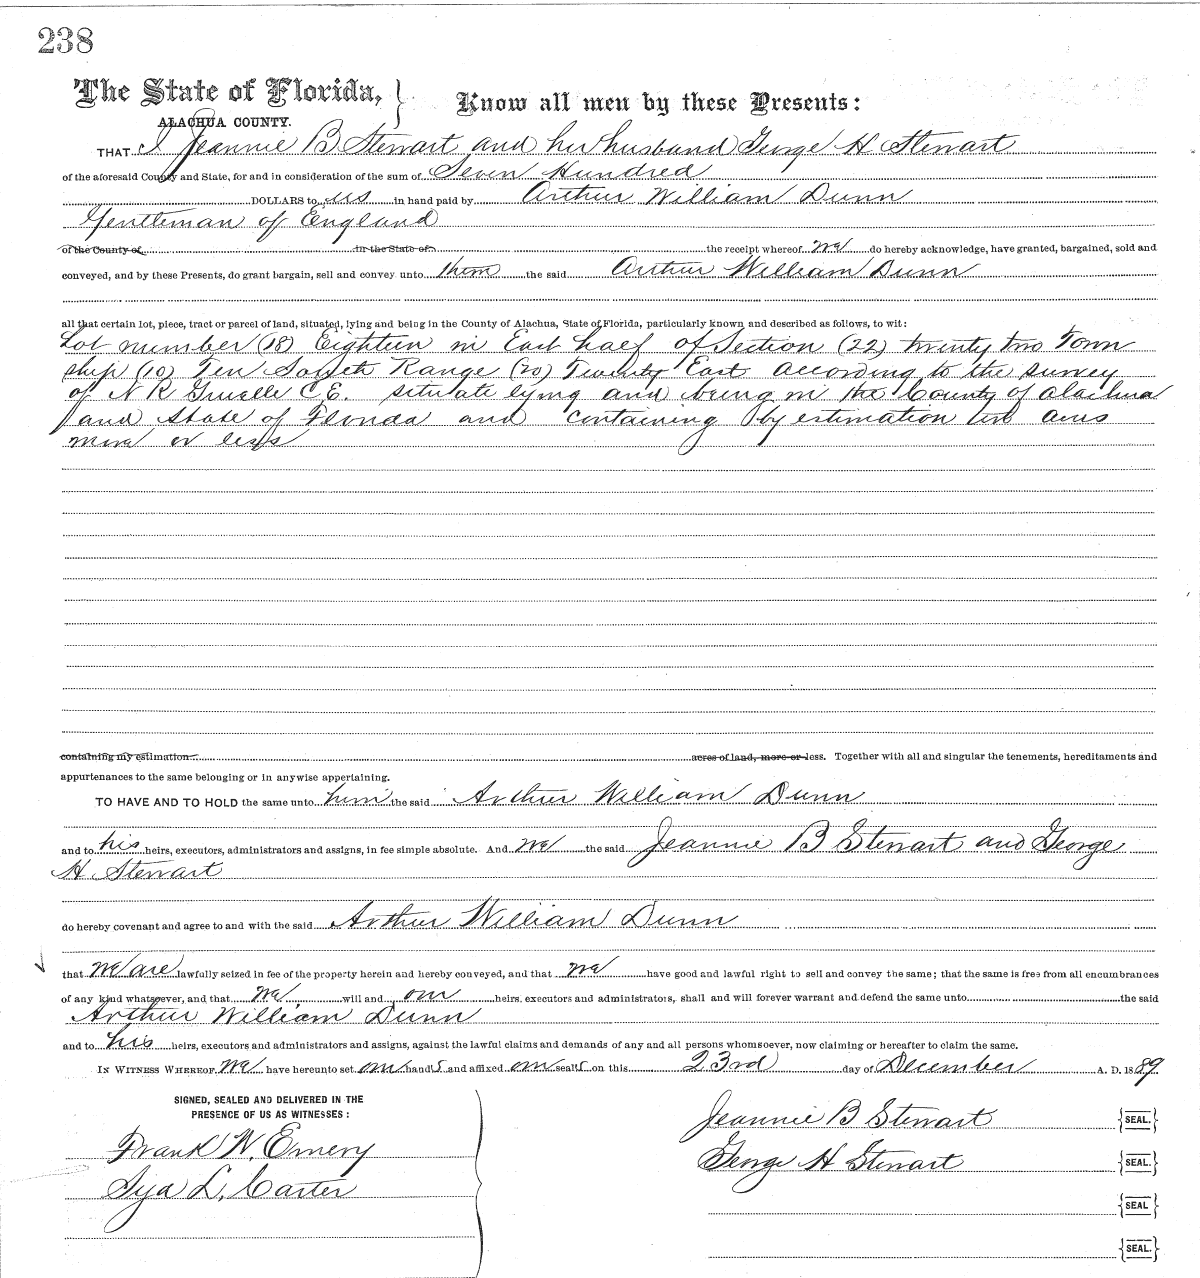 238
The State of Florida,
ALACHUA COUNTY.
Know all men by these Presents:
THAT I Jeannie B Stewart and her husband George H Stewart
of the aforesaid County and State, for and in consideration of the sum of Seven Hundred
DOLLARS to us in hand paid by Arthur William Dunn
Gentleman of England
of the County of in the State of the receipt whereof we do hereby acknowledge, have granted, bargained, sold and
conveyed, and by these Presents, do grant bargain, sell and convey unto them the said Arthur William Dunn
all that certain lot, piece, tract or parcel of land, situated, lying and being in the County of Alachua, State of Florida, particularly known and described as follows, to wit:
Lot number (18) Eighteen in East half of Section (22) twenty two Town
ship (10) Ten South Range (20) Twenty East according to the survey
of N R Gruelle C.E. situate lying and being in the County of Alachua
and State of Florida and containing by estimation acres
more or less
containing my estimation acres of land, more or less. Together with all and singular the tenements, hereditaments and
appurtenances to the same belonging or in anywise appertaining.
TO HAVE AND TO HOLD the same unto him the said Arthur William Dunn
and to his heirs, executors, administrators and assigns, in fee simple absolute. And we the said Jeannie B Stewart and George
H Stewart
do hereby covenant and agree to and with the said Arthur William Dunn
that we are lawfully seized in fee of the property herein and hereby conveyed, and that we have good and lawful right to sell and convey the same; that the same is free from all encumbrances
of any kind whatsoever, and that we will and our heirs, executors and administrators, shall and will forever warrant and defend the same unto the said
Arthur William Dunn
and to his heirs, executors and administrators and assigns, against the lawful claims and demands of any and all persons whomsoever, now claiming or hereafter to claim the same.
IN WITNESS WHEREOF, we have hereunto set our hands and affixed our seals on this 23rd day of December A. D. 1889.
SIGNED, SEALED AND DELIVERED IN THE
PRESENCE OF US AS WITNESSES:
Jeannie B Stewart SEAL.
Frank W. Emery
George H Stewart SEAL.
L. Carter
SEAL
SEAL.